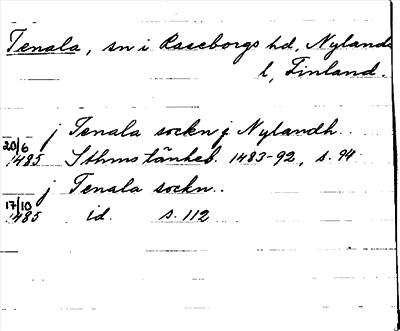 Tenala, sn i Raseborgs hd, Nylands
l, Finland.
20/6 j Tenala sockn j Nylandh..
1485 Sthms tänkeb. 1483-92, s. 94
17/10 j Tenala sockn..
1485 id. s. 112